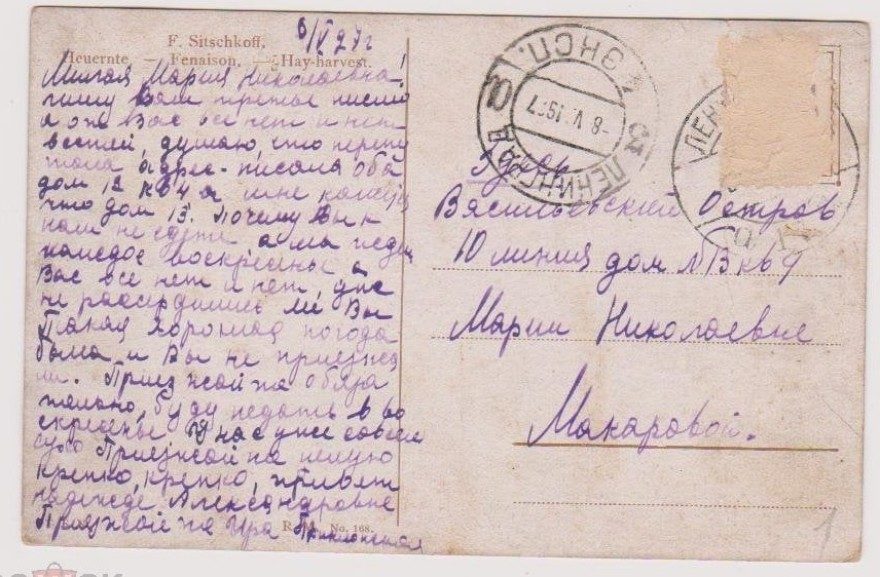 6/V 27 г
F. Sitschkoff,
Heuernte. — Fenaison. — Hay-harvest.
Милая Мария Николаевна!
пишу Вам третье письмо
а от Вас все нет и нет
вестей, думаю, что перепу
тала адрес. писала
дом 12 кв 4 а мне кажется
что дом 13. Почему Вы к
нам не едете а мы ждем
каждое воскресенье а
Вас все нет и нет, уже
не рассердились ли Вы
Такая хорошая погода
была и Вы не приезжа
ли. Приезжайте обяза
тельно, буду ждать в во
скресенье У нас уже совсем
сухо Приезжайте целую
крепко, крепко, привет
Надежде Александровне
Приезжайте Ира
R. M. No. 168.
ЛЕНИНГРАД
ЭКСП.
-8 V. 1927
ЛЕН
Здесь
Васильевский Остров
10 линия дом № 13 кв 4
Марии Николаевне
Макаровой.
1